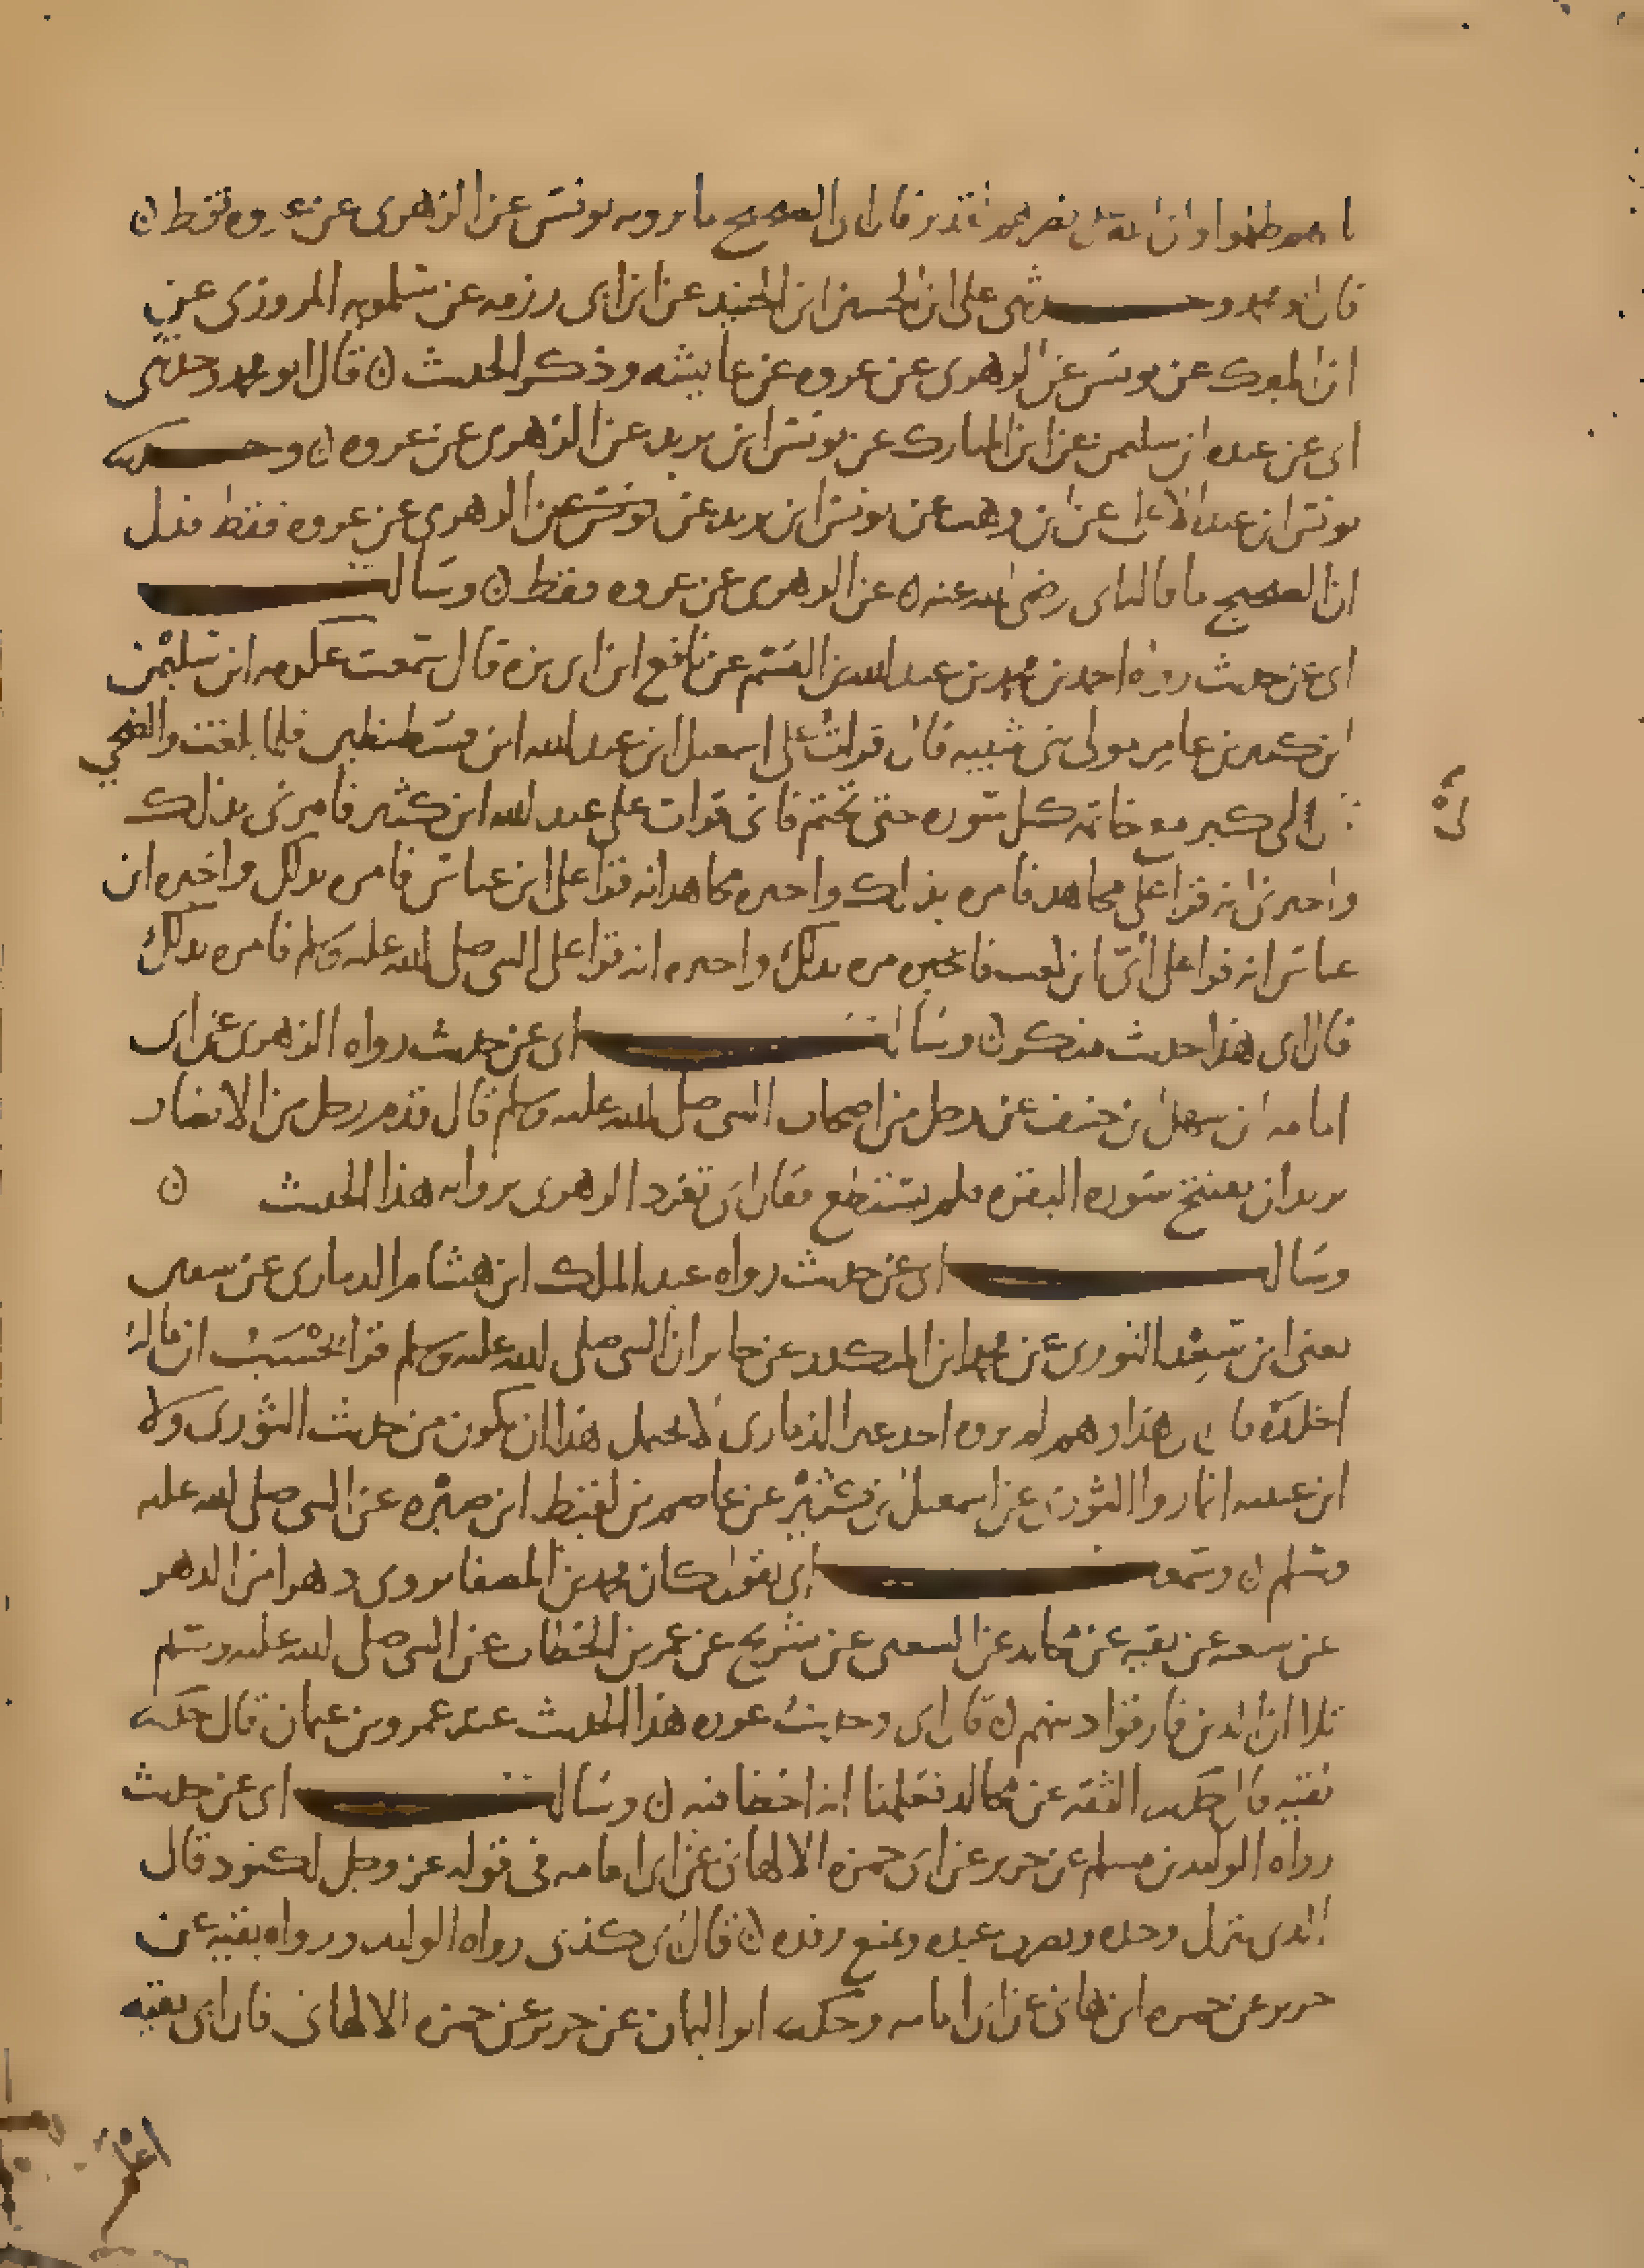 قال ان الصحيح ما يرويه يونس عن الزهرى عن عروه فقط ن
قال ابو محمد وحدثنى على ابن الحسين ابن الجنيد عن ابن ابى رزمه عن سلمويه المروزى عن
ابن المبرك عن يونس عن الزهرى عن عروه عن عايشه وذكر الحديث ن قال ابو محمد وحدثنى
ابى عن عبده ابن سليمن عن ابن المبارك عن يونس ابن يزيد عن الزهرى عن عروه ن وحدثنا
يونس ابن عبد الاعلى عن ابن وهب عن يونس ابن يزيد عن يونس عن الزهرى عن عروه فقط فدل
ان الصحيح ما قال ابى رضى الله عنه ن عن الزهرى عن عروه فقط ن وسالت
ابى عن حديث رواه احمد بن محمد بن عبد الله بن القسم عن نافع ابن ابى بزه قال سمعت عكرمه ابن سليمن
ابن كثير بن عامر مولى بنى شيبه قال قرات على اسمعيل ابن عبد الله ابن قسطنطين فلما بلغت والضحى
قال لى كبر مع خاتمه كل سوره حتى تختم فانى قرات على عبد الله ابن كثير فامرنى بذلك
واخبرنى انه قرا على مجاهد فامره بذلك واخبره مجاهد انه قرا على ابن عباس فامره بذلك واخبره ابن
عباس انه قرا على ابى ابن كعب مره بذلك واخبره انه قرا على النبى صلى الله عليه وسلم فامره بذلك
قال ابى هذا حديث منكر ن وسالت ابى عن حديث رواه الزهرى عن ابى
امامه ابن سهل بن حنيف عن رجل من اصحاب النبى صلى الله عليه وسلم قال قدم رجل من الانصار
يريد ان يفتتح سوره البقره فلم يستطع فقال ابى تفرد الزهرى بروايه هذا الحديث ن
وسالت ابى عن حديث رواه عبد الملك ابن هشام الذمارى عن سفين
يعنى ابن سعيد الثورى عن محمد ابن المنكدر عن جابر ان النبى صلى الله عليه وسلم قرا يحسب ان ماله
اخلده قال ابى هذا وهم لم يروه احد غير الذمارى لا يحتمل هذا ان يكون من حديث الثورى ولا
ابن عيينه انما روا الثورى عن اسمعيل بن كثير عن عاصم بن لقيط ابن صبره عن النبى صلى الله عليه
وسلم ن وسمعت ابى يقول كان محمد بن المصفا يروى دهرا من الدهر
عن شعبه عن بقيه عن مجالد عن الشعبى عن شريح عن عمر بن الخطاب عن النبى صلى الله عليه وسلم
تلا ان الذين فارقوا دينهم ن قال ابى وحدثت عوره هذا الحديث عند عمرو بن عثمان قال حدثنا
بقيه قال حدثنا الثقه عن مجالد فعلمنا انه اخطا فيه ن وسالت ابى عن حديث
رواه الوليد بن مسلم عن حريز عن ابى حمزه الالهانى عن ابى امامه فى قوله عز وجل لكنود قال
الذى ينزل وحده ويضرب عبده ويمنع رفده ن قال ابى كذى رواه الوليد ورواه بقيه عن
حريز عن حمزه ابن هانى عن ابى امامه وحدثنا ابو اليمان عن حريز عن حمزه الالهانى قال ابى بقيه